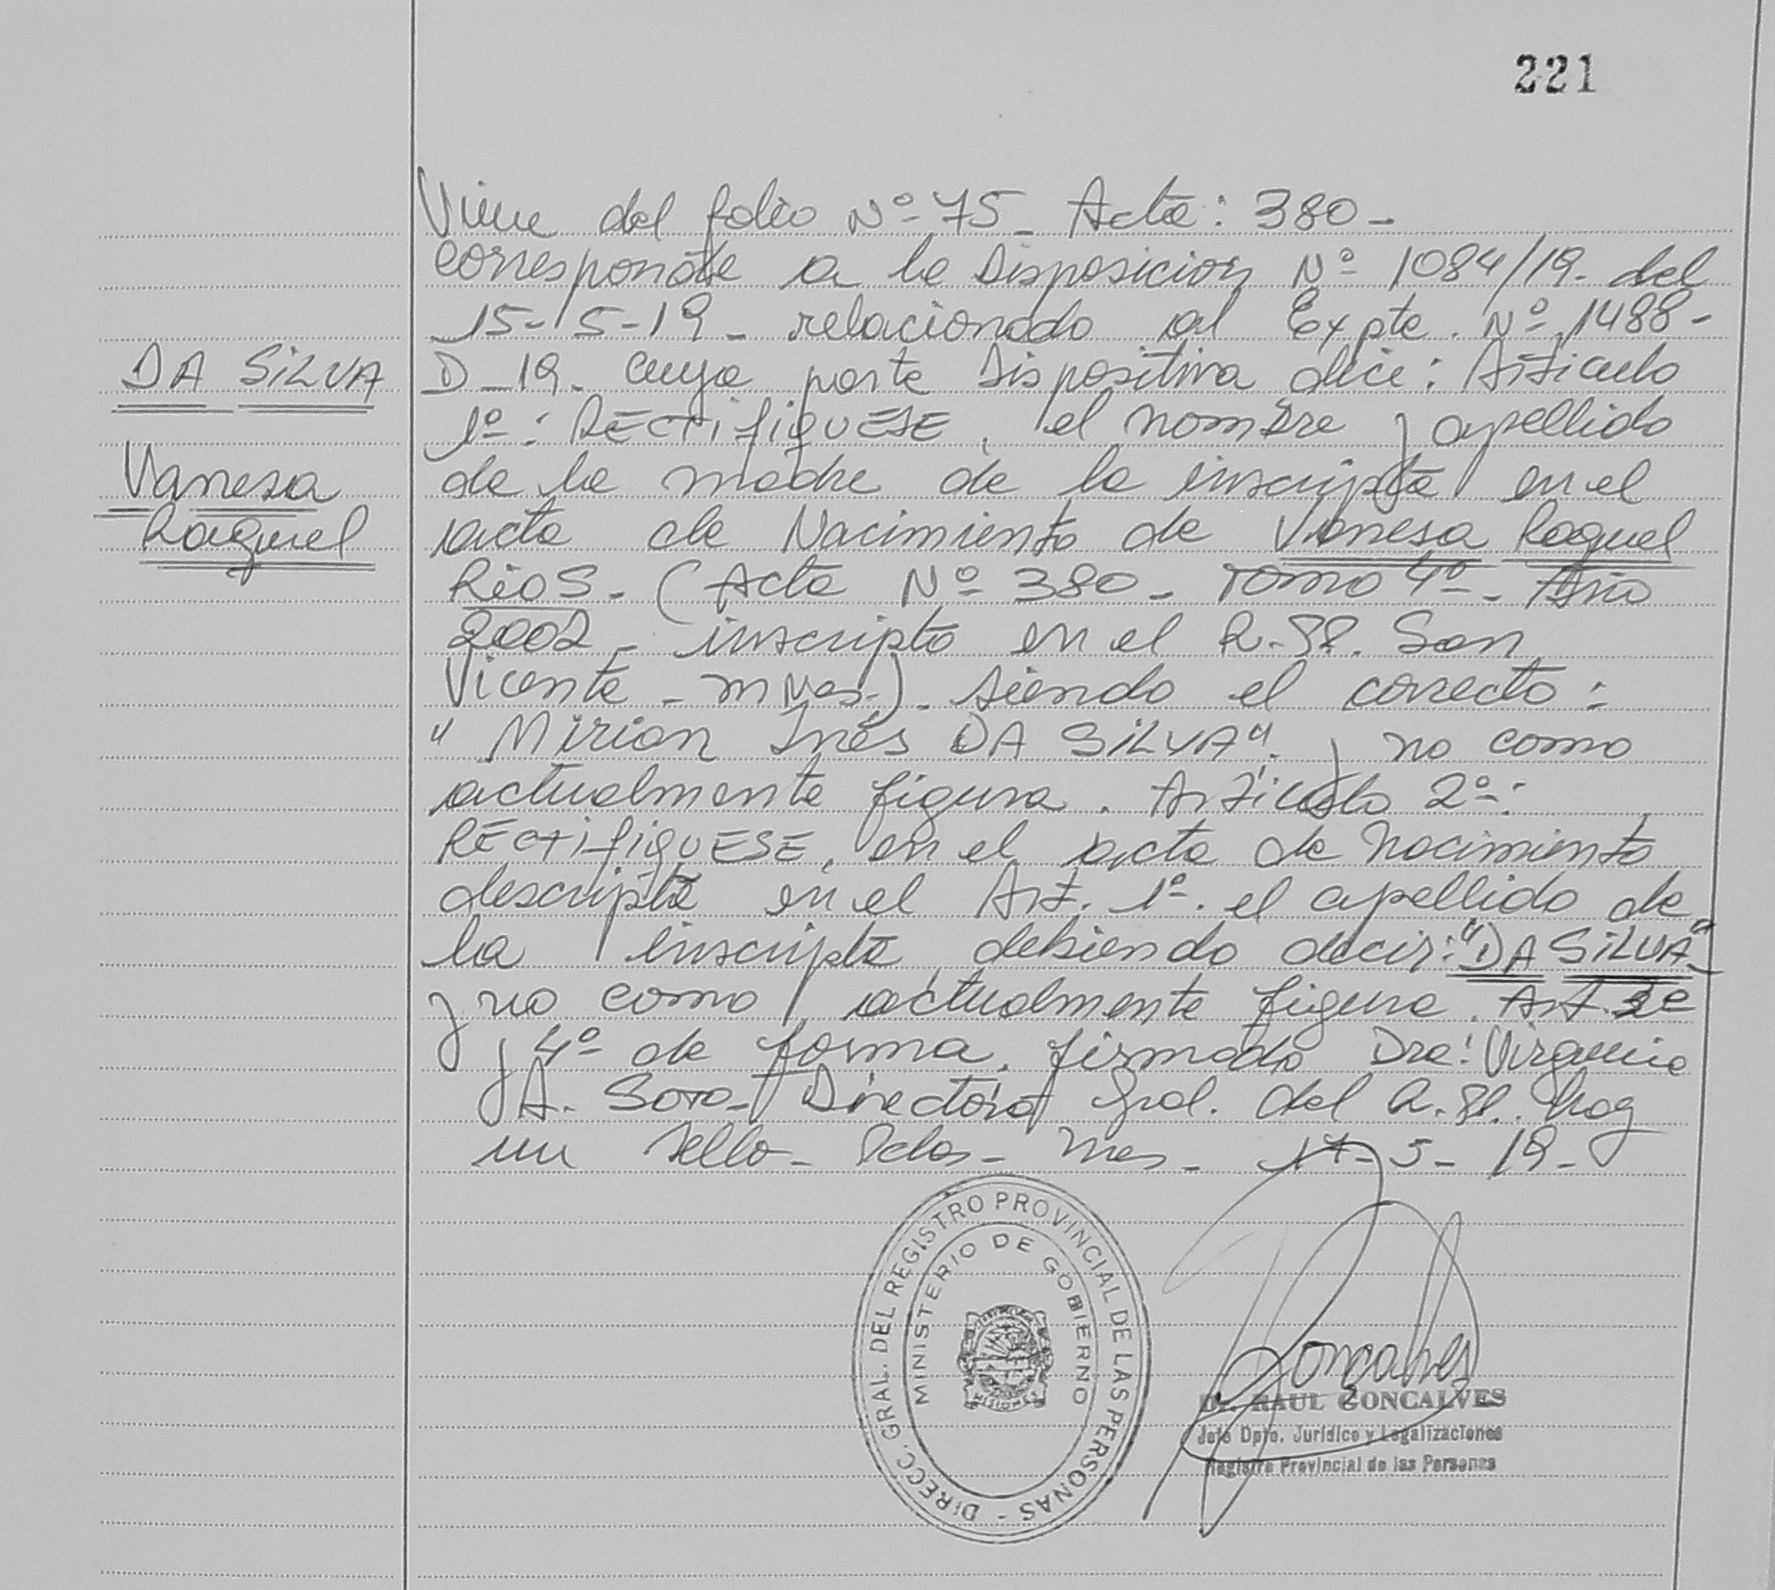 221
Viene del folio Nº 75_ Acta: 380_
corresponde a la Disposicion Nº 1084/19_ del
15-5-19_ relacionado al Expte. Nº 1488-
D_19_ cuya parte Dispositiva dice: Articulo
1º: RECTIFIQUESE, el nombre y apellido
de la madre de la inscripta en el
acta de Nacimiento de Vanesa Raquel
RIOS_ (Acta Nº 380_ Tomo 4º_ Año
2002_ inscripto en el R.PP. San
Vicente_ Mnes.)_ siendo el correcto:
"Mirian Inés DA SILVA". y no como
actualmente figura. Articulo 2º:
RECTIFIQUESE, en el acta de nacimiento
descripta en el Art. 1º. el apellido de
la inscripta, debiendo decir: "DA SILVA"_
y no como actualmente figura. Art. 3º
y 4º de forma. firmado Dra: Virginia
A. Soto_ Directora Gral. del R.PP. hay
un sello_ Pdas_ Mnes_ 17-5-19_
DA SILVA
Vanesa
Raquel
DIRECC. GRAL. DEL REGISTRO PROVINCIAL DE LAS PERSONAS -
MINISTERIO DE GOBIERNO
MISIONES
Goncalves
Dr. RAUL GONCALVES
Jefe Dpto. Jurídico y Legalizaciones
Registro Provincial de las Personas